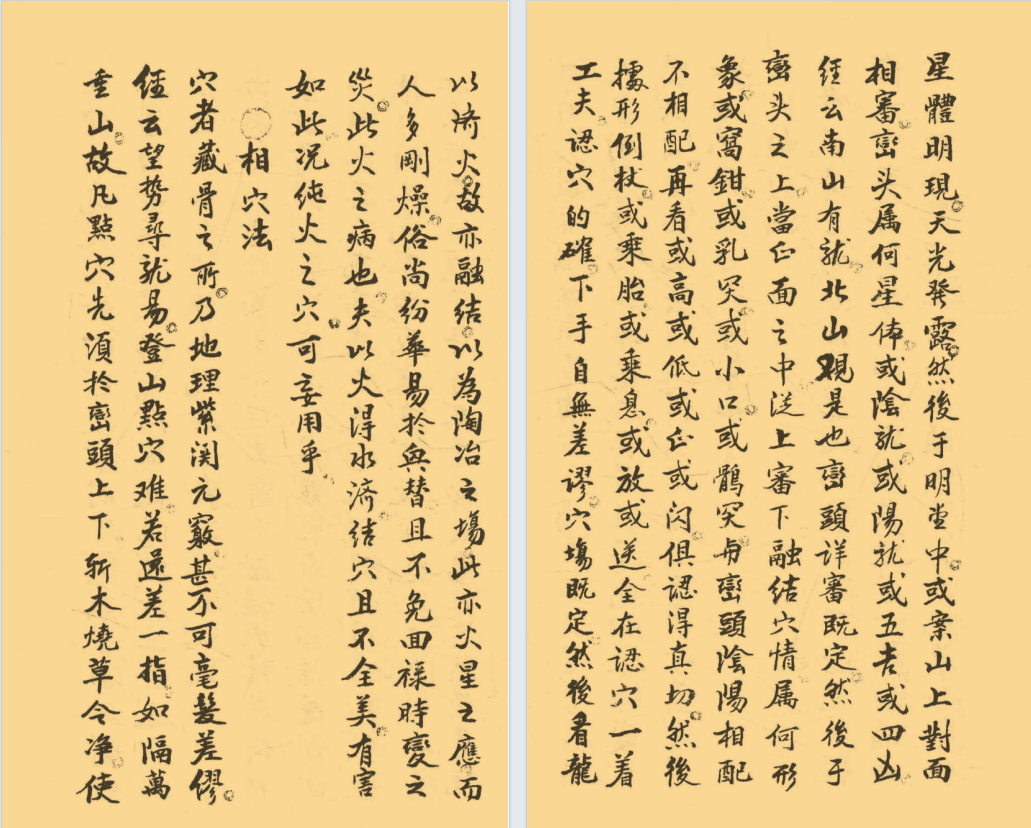 以濟火故亦融结以為陶冶之塲此亦火星之應而
人多剛燥俗尚纷華易於興替且不免回禄時變之
災此火之病也夫以火得水濟结穴且不全美有害
如此况纯火之穴可妄用乎
相穴法
穴者藏骨之所乃地理紫関元竅甚不可毫髮差僇
經云望势尋龍易登山點穴难若還差一指如隔萬
重山故凡點穴先湏於巒頭上下斬木燒草令净使
星體明現天光發露然後于明堂中或案山上對面
相審巒头属何星体或陰龍或陽龍或五吉或四凶
經云南山有龍北山觀是也巒頭詳審既定然後于
巒头之上當正面之中從上審下融結穴情属何形
象或窩鉗或乳突或小口或鶻突與巒頭陰陽相配
不相配再看或高或低或正或闪俱認得真切然後
據形倒杖或乘胎或乘息或放或送全在認穴一着
工夫認穴的確下手自無差謬穴塲既定然後看龍